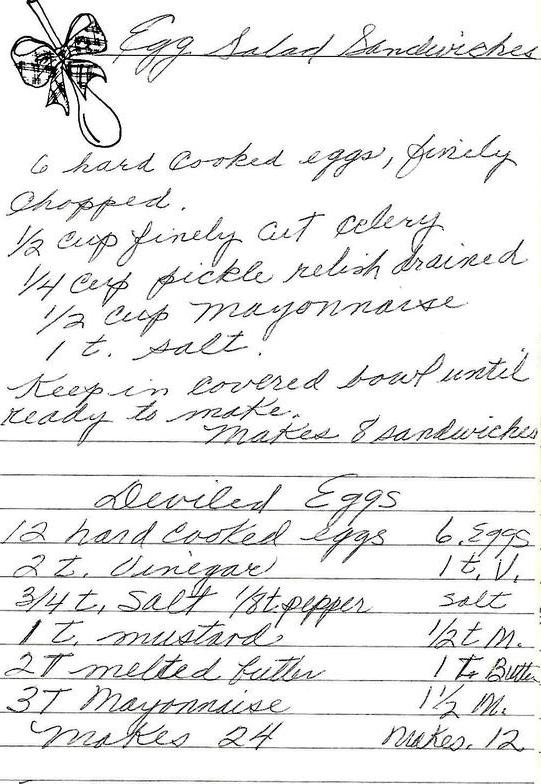 Egg Salad Sandwiches
6 hard cooked eggs, finely
chopped.
1/2 cup finely cut celery
1/4 cup pickle relish drained
1/2 cup mayonnaise
1 t. salt.
Keep in covered bowl until
ready to make.
Makes 8 sandwiches
Deviled Eggs
12 hard cooked eggs 6. Eggs
2 t. Vinegar 1 t. V.
3/4 t, Salt 1/8 t. pepper salt
1 t. mustard 1/2 t M.
2 T melted butter 1 T. Butter
3 T Mayonnaise 1 1/2 M.
Makes 24 makes. 12